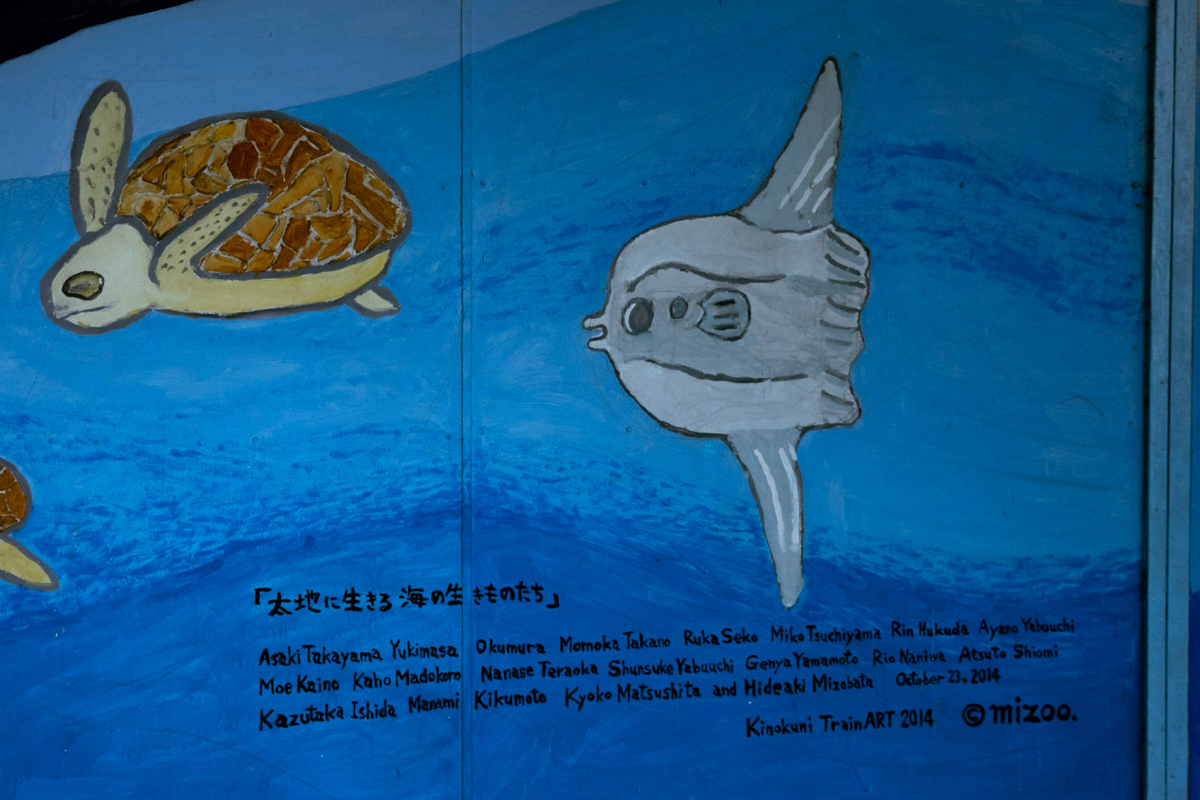 「太地に生きる海の生きものたち」
Asaki Takayama Yukimasa Okumura Momoka Takano Ruka Seko Miko Tsuchiyama Rin Hukuda Ayano Yabuuchi
Moe Kaino Kaho Madokoro Nanase Teraoka Shunsuke Yabuuchi Genya Yamamoto Rio Naniwa Atsuto Shiomi
Kazutaka Ishida Manami Kikumoto Kyoko Matsushita and Hideaki Mizobata October 23, 2014
Kinokuni TrainART 2014 ©mizoo.